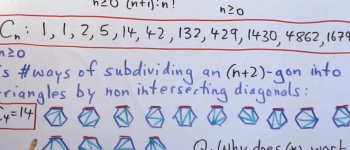 n≥0 (n+1)!n! n≥0
Cn: 1, 1, 2, 5, 14, 42, 132, 429, 1430, 4862, 1679
n≥0
is #ways of subdividing an (n+2)-gon into
triangles by non intersecting diagonals:
C4=14
Q: Why does (*) work